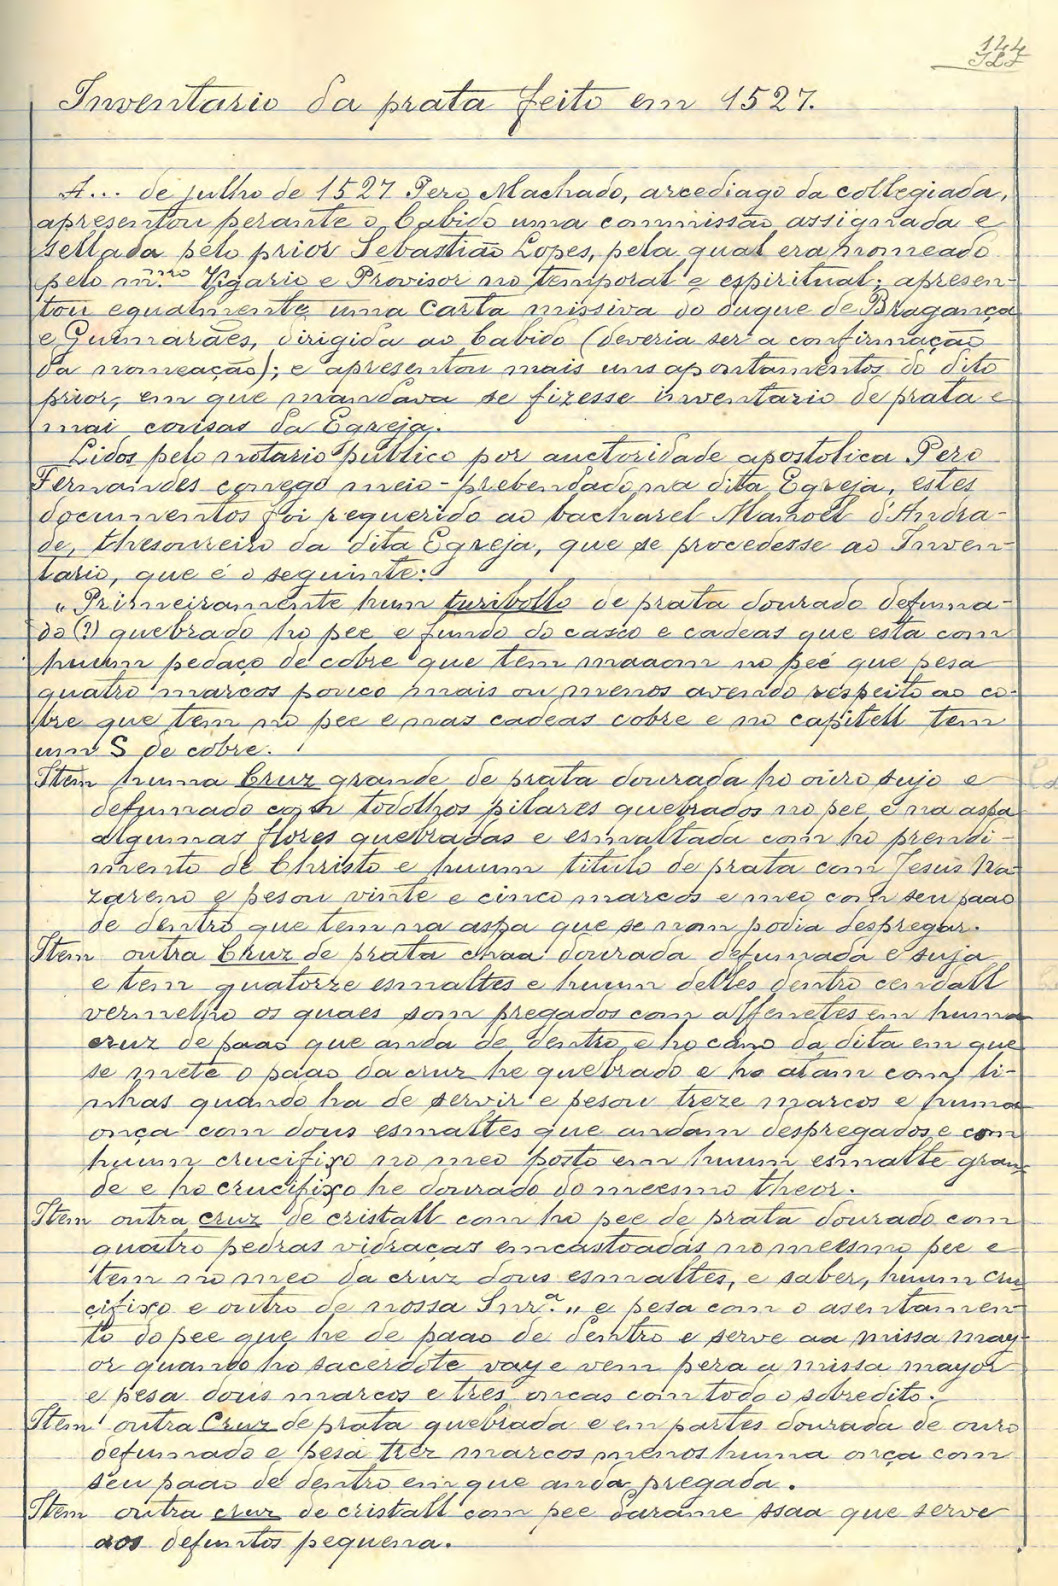 144
Inventario da prata feito em 1527.
A... de julho de 1527 Pero Machado, arcediago da collegiada,
apresentou perante o Cabido uma commissão assignada e
sellada pelo prior Sebastião Lopes, pela qual era nomeado
pelo m.mo Vigario e Provisor no temporal e espiritual; apresen-
tou egualmente uma carta missiva do duque de Bragança
e Guimarães, dirigida ao Cabido (deveria ser a confirmação
da nomeação); e apresentou mais uns apontamentos do dito
prior, em que mandava se fizesse inventario de prata e
mai cousas da Egreja.
Lidos pelo notario publico por auctoridade apostolica Pero
Fernandes conego meio-prebendado na dita Egreja, estes
documentos foi requerido ao bacharel Manoel d'Andra-
de, thesoureiro da dita Egreja, que se procedesse ao Inven-
tario, que é o seguinte:
"Primeiramente hum turibollo de prata dourado defuma-
do (?) quebrado ho pee e fundo do casco e cadeas que esta com
huum pedaço de cobre que tem maaom no peé que pesa
quatro marcos pouco mais ou menos avendo respeito ao co-
bre que tem no pee e nas cadeas cobre e no capitell tem
um S de cobre.
Item huma Cruz grande de prata dourada ho oiro sujo e
defumado com todolhos pilares quebrados no pee, e na aspa
algumas flores quebradas e esmaltada com ho prendi-
mento de Christo e huum titulo de prata com Jesus Na-
zareno e pesou vinte e cinco marcos e meo com seu paao
de dentro que tem na aspa que se nom podia despregar.
Item outra Cruz de prata chaa dourada defumada e suja
e tem quatorze esmaltes e huum delles dentro cendall
vermelho os quaes som pregados com alfenetes em huma
cruz de paao que anda de dentro e ho cano da dita em que
se mete o paao da cruz he quebrado e ho atam com li-
nhas quando ha de servir e pesou treze marcos e huma
onça com dous esmaltes que andam despregados e com
huum crucifixo no meo posto em huum esmalte gran-
de e ho crucifixo he dourado do meesmo theor.
Item outra cruz de cristall com ho pee de prata dourado com
quatro pedras vidraças emcastoadas no meesmo pee e
tem no meo da cruz dous esmaltes, e saber, huum cru-
cifixo e outro de nossa Snr.ª „ e pesa com o asentamen-
to do pee que he de paao de dentro e serve aa missa may-
or quando ho sacerdote vay e vem pera a missa mayor
e pesa dous marcos e tres onças com todo o sobredito.
Item outra Cruz de prata quebrada e em partes dourada de ouro
defumado e pesa trez marcos menos huma onça com
seu paao de dentro em que anda pregada.
Item outra cruz de cristall com pee darame ssaa que serve
aos defuntos pequena.